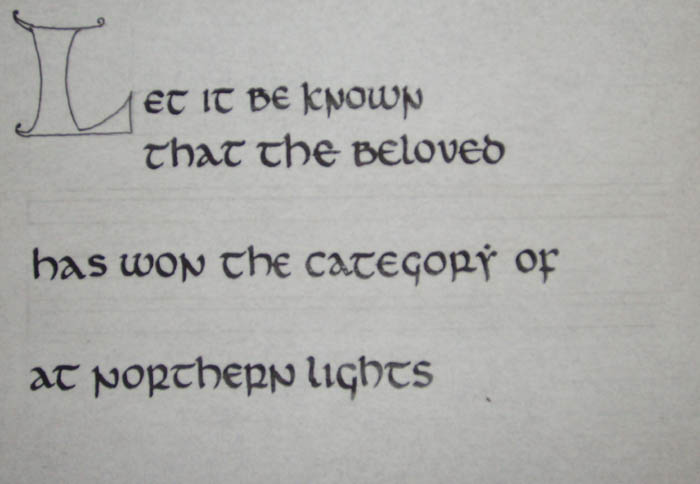 Let it be known
that the beloved
has won the category of
at Northern Lights